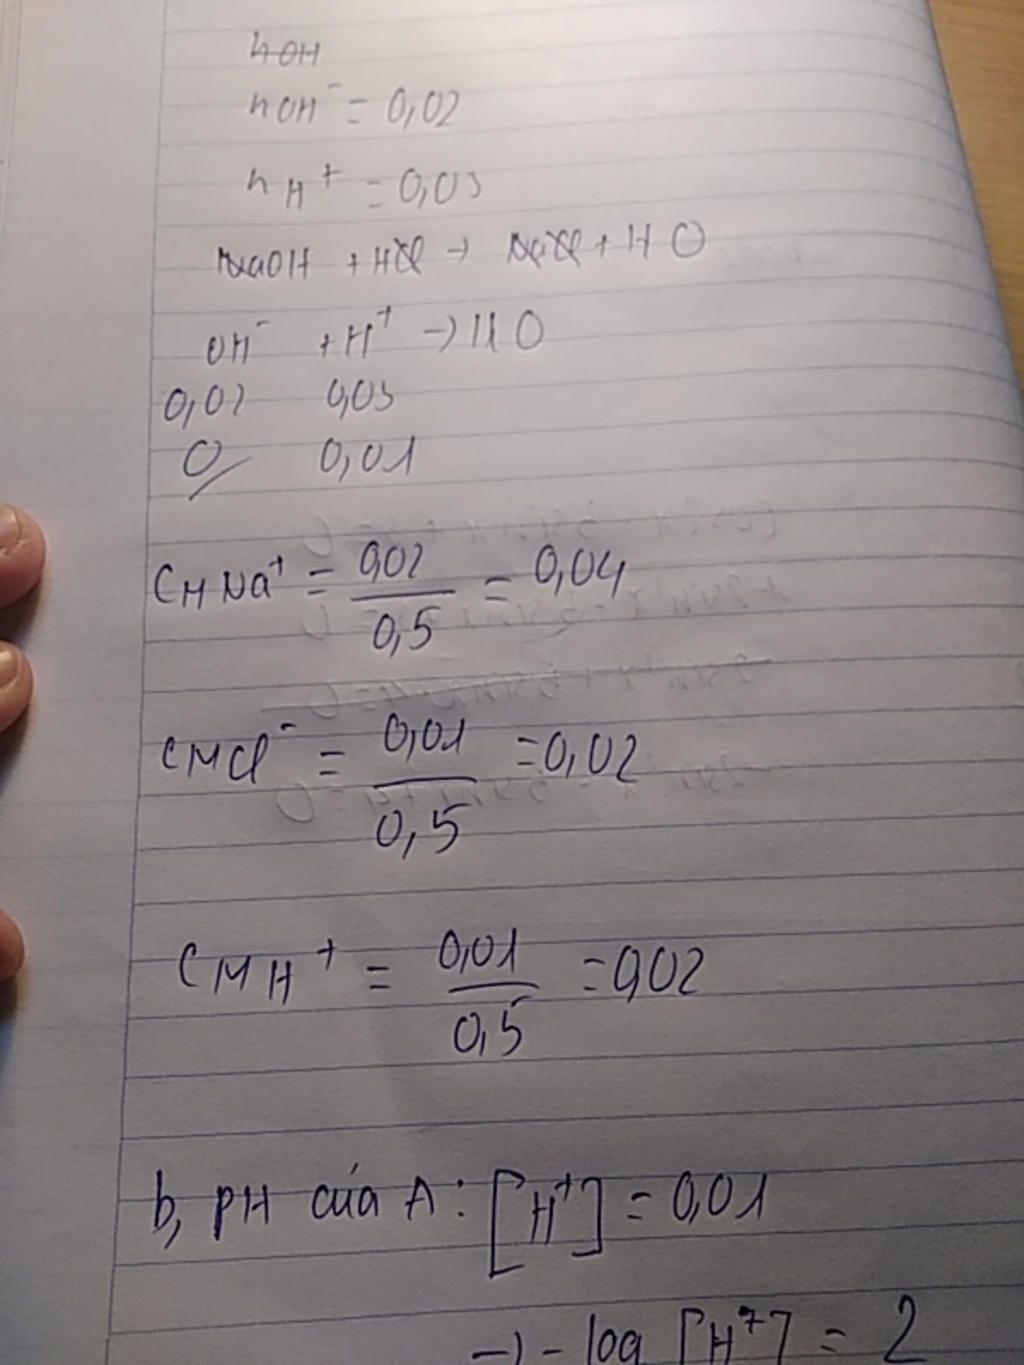 nOH
nOH⁻ = 0,02
nH⁺ = 0,03
NaOH + HCl → NaCl + HO
OH⁻ + H⁺ → HO
0,02 0,03
0 0,01
CM Na⁺ = 0,02 / 0,5 = 0,04
CM Cl⁻ = 0,01 / 0,5 = 0,02
CM H⁺ = 0,01 / 0,5 = 0,02
b, pH của A : [H⁺] = 0,01
→ - log [H⁺] = 2